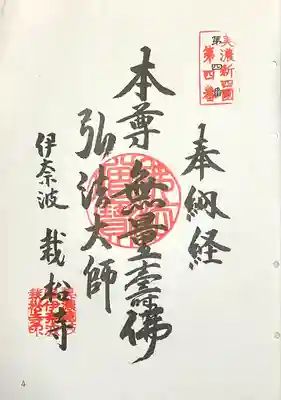 奉納経
美濃新四国
第四番
本尊 無量壽佛
弘法大師
伊奈波 栽松寺
4